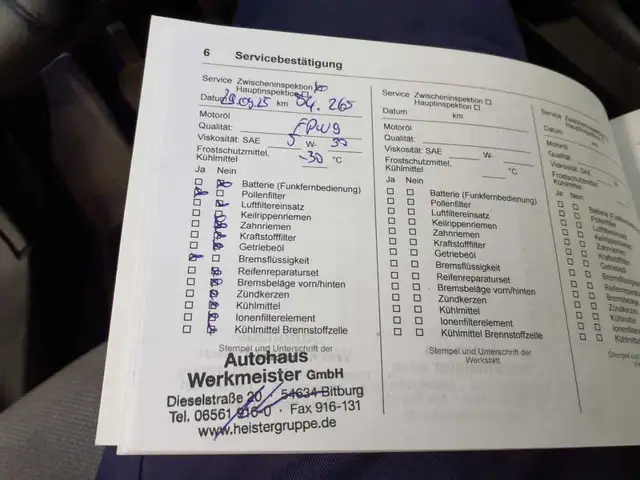 6 Servicebestätigung
Service Zwischeninspektion
Hauptinspektion
Datum 29.09.25 km 04.265
Motoröl
Qualität: FPW9
Viskosität: SAE 5 W- 30
Frostschutzmittel,
Kühlmittel -30 °C
Ja Nein
Batterie (Funkfernbedienung)
Pollenfilter
Luftfiltereinsatz
Keilrippenriemen
Zahnriemen
Kraftstofffilter
Getriebeöl
Bremsflüssigkeit
Reifenreparaturset
Bremsbeläge vorn/hinten
Zündkerzen
Kühlmittel
Ionenfilterelement
Kühlmittel Brennstoffzelle
Stempel und Unterschrift der
Autohaus
Werkmeister GmbH
Dieselstraße 20 · 54634 Bitburg
Tel. 06561 916-0 · Fax 916-131
www.heistergruppe.de
Service Zwischeninspektion
Hauptinspektion
Datum km
Motoröl
Qualität:
Viskosität: SAE W-
Frostschutzmittel,
Kühlmittel °C
Ja Nein
Batterie (Funkfernbedienung)
Pollenfilter
Luftfiltereinsatz
Keilrippenriemen
Zahnriemen
Kraftstofffilter
Getriebeöl
Bremsflüssigkeit
Reifenreparaturset
Bremsbeläge vorn/hinten
Zündkerzen
Kühlmittel
Ionenfilterelement
Kühlmittel Brennstoffzelle
Stempel und Unterschrift der
Werkstatt
Service
Datum km
Motoröl
Qualität
Viskosität: SAE
Kühlmittel
Ja Nein
Pollenfilter
Luftfiltereinsatz
Zahnriemen
Getriebeöl
Zündkerzen
Kühlmittel